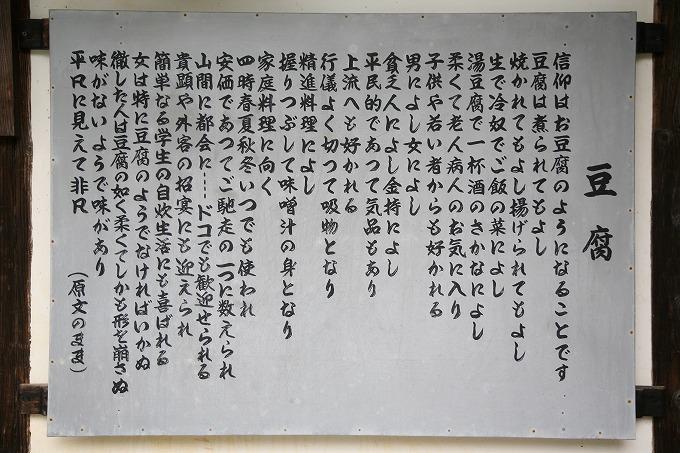 豆腐
信仰はお豆腐のようになることです
豆腐は煮られてもよし
焼かれてもよし揚げられてもよし
生で冷奴でご飯の菜によし
湯豆腐で一杯酒のさかなによし
柔くて老人病人のお気に入り
子供や若い者からも好かれる
男によし女によし
貧乏人によし金持によし
平民的であつて気品もあり
上流へも好かれる
行儀よく切つて吸物となり
精進料理によし
握りつぶして味噌汁の身となり
家庭料理に向く
四時春夏秋冬いつでも使われ
安価であつてご馳走の一つに数えられ
山間に都会に……ドコでも歓迎せられる
貴顕や外客の招宴にも迎えられ
簡単なる学生の自炊生活にも喜ばれる
女は特に豆腐のようでなければいかぬ
徹した人は豆腐の如く柔くてしかも形を崩さぬ
味がないようで味があり
平凡に見えて非凡
(原文のまま)